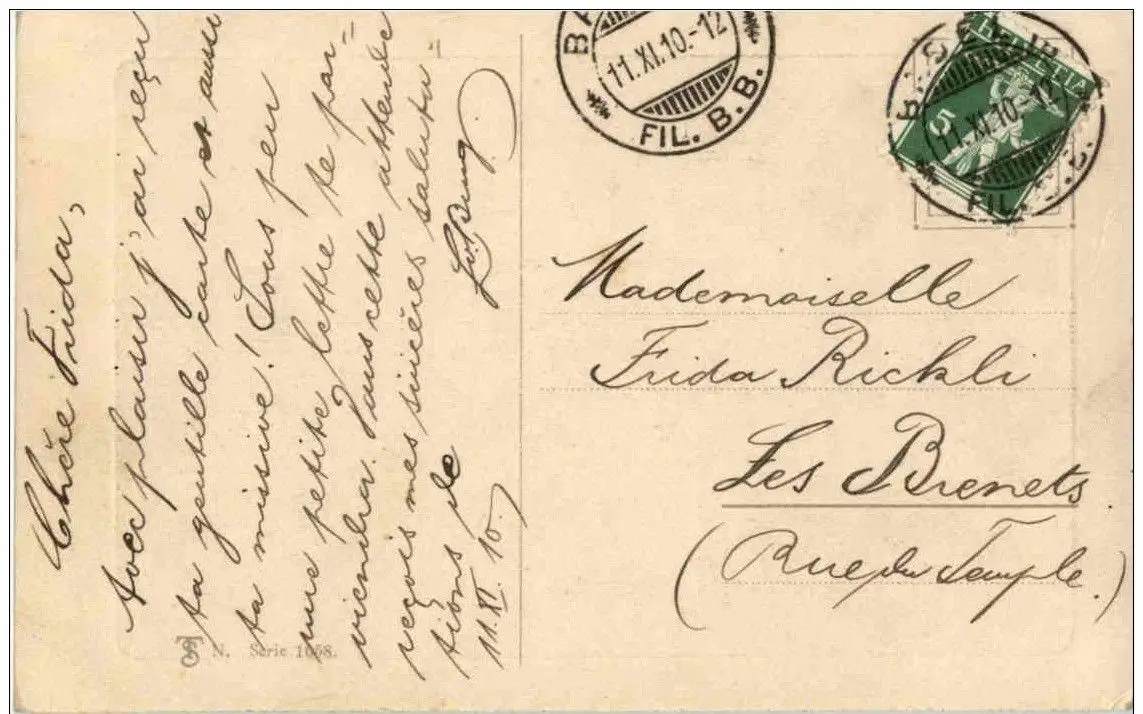 Chère Frida,
Avec plaisir j'ai reçu
ta gentille carte et aussi
ta missive! Sous peu
une petite lettre te par=
viendra. Dans cette attende
reçois mes sincères saluta=
tions de
11.XI.10.
11.XI.10.-12
FIL. B. B.
HELVETIA
5
11.XI.10.-12
FIL.
Mademoiselle
Frida Rickli
Les Brenets
(Rue du Temple.)
N. Serie 1058.